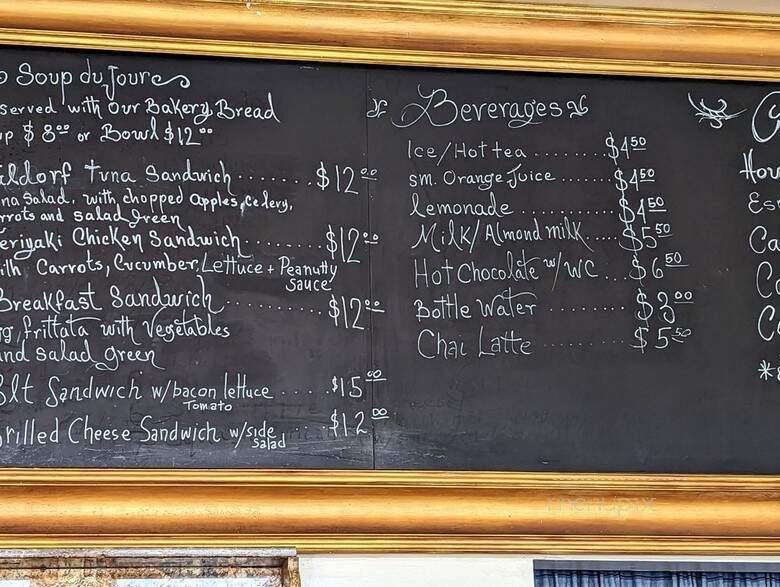 Soup du Jour
served with our Bakery Bread
$8.00 or Bowl $12.00
Tuna Sandwich ........ $12.00
Salad, with chopped apples, celery,
and salad green
Chicken Sandwich ........ $12.00
Carrots, Cucumber, Lettuce + Peanutty
sauce
Breakfast Sandwich ......... $12.00
frittata with Vegetables
and salad green
Blt Sandwich w/bacon lettuce .... $15.00
Tomato
Grilled Cheese Sandwich w/side .... $12.00
salad
Beverages
Ice/Hot tea ........ $4.50
sm. Orange Juice ....... $4.50
lemonade ........... $4.50
Milk/Almond milk.... $5.50
Hot Chocolate w/WC ... $6.50
Bottle Water ......... $3.00
Chai Latte ......... $5.50
menupix